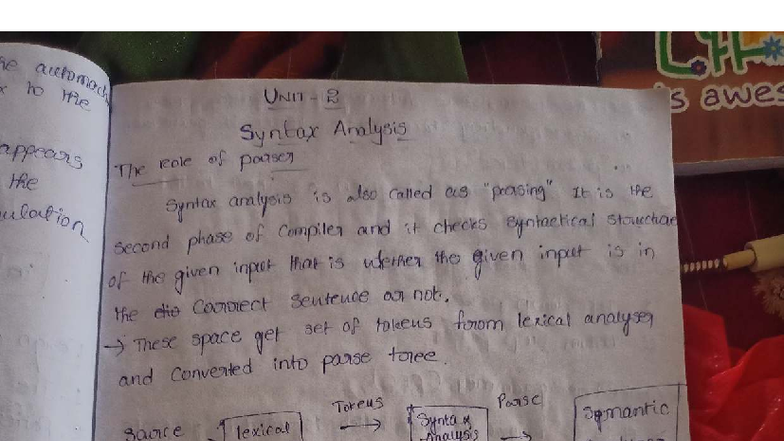 he automach
x to the
appears
the
ulation
UNIT - 2
Syntax Analysis
The role of parser
Syntax analysis is also called as "parsing" It is the
second phase of Compiler and it checks syntactical structure
of the given input that is whether the given input is in
the correct sentence or not.
→ These space get set of tokens from lexical analyser
and converted into parse tree.
Tokens
Parse
Source
lexical
Syntax
Analysis
Semantic
s awes